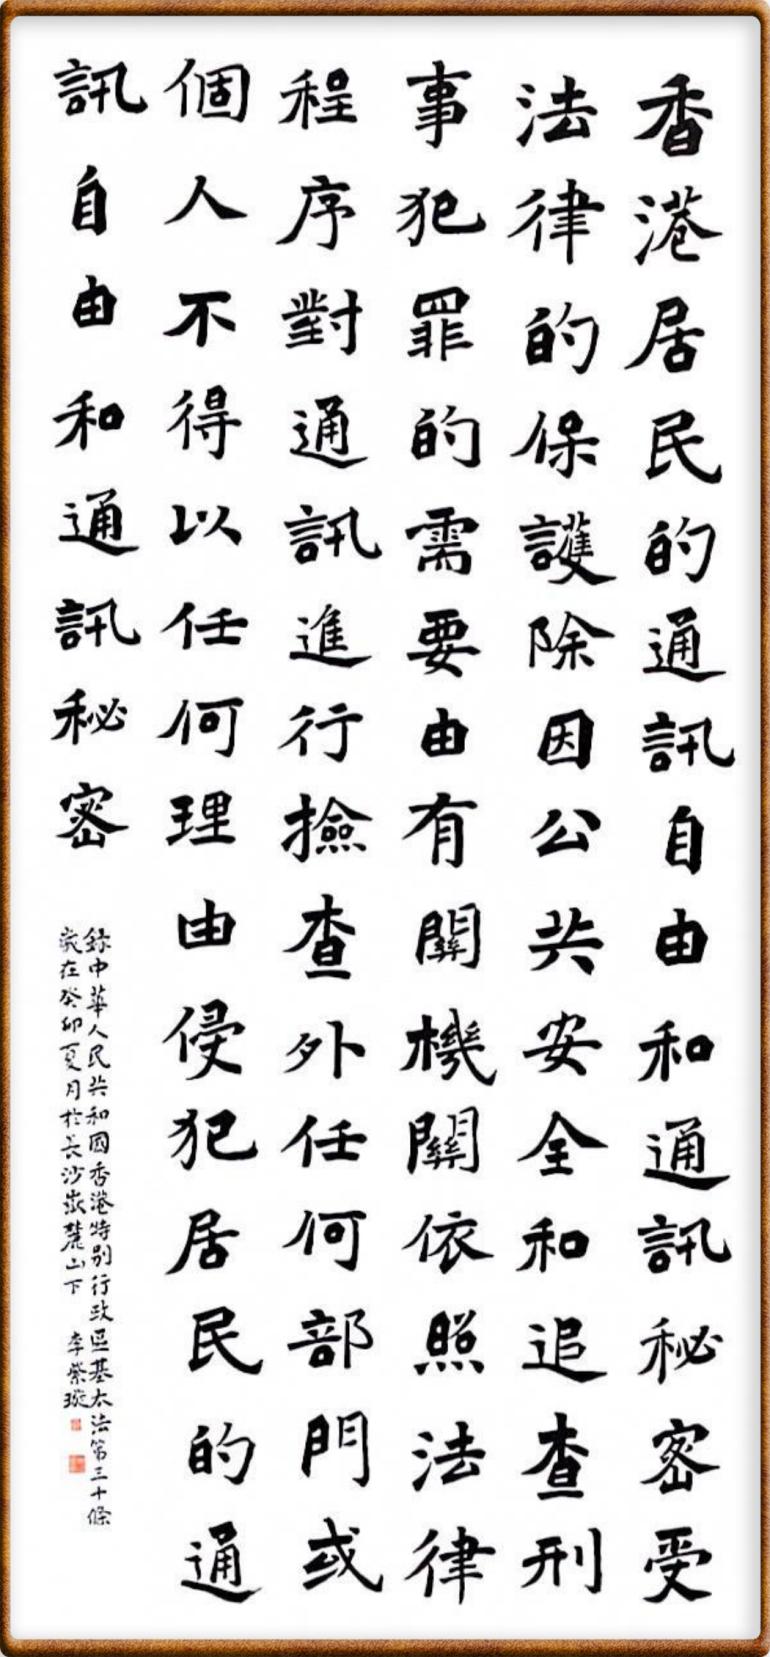 香港居民的通訊自由和通訊秘密受
法律的保護除因公共安全和追查刑
事犯罪的需要由有關機關依照法律
程序對通訊進行撿查外任何部門或
個人不得以任何理由侵犯居民的通
訊自由和通訊秘密
錄中華人民共和國香港特別行政區基本法第三十條
歲在癸卯夏月於長沙嶽麓山下 李紫璇